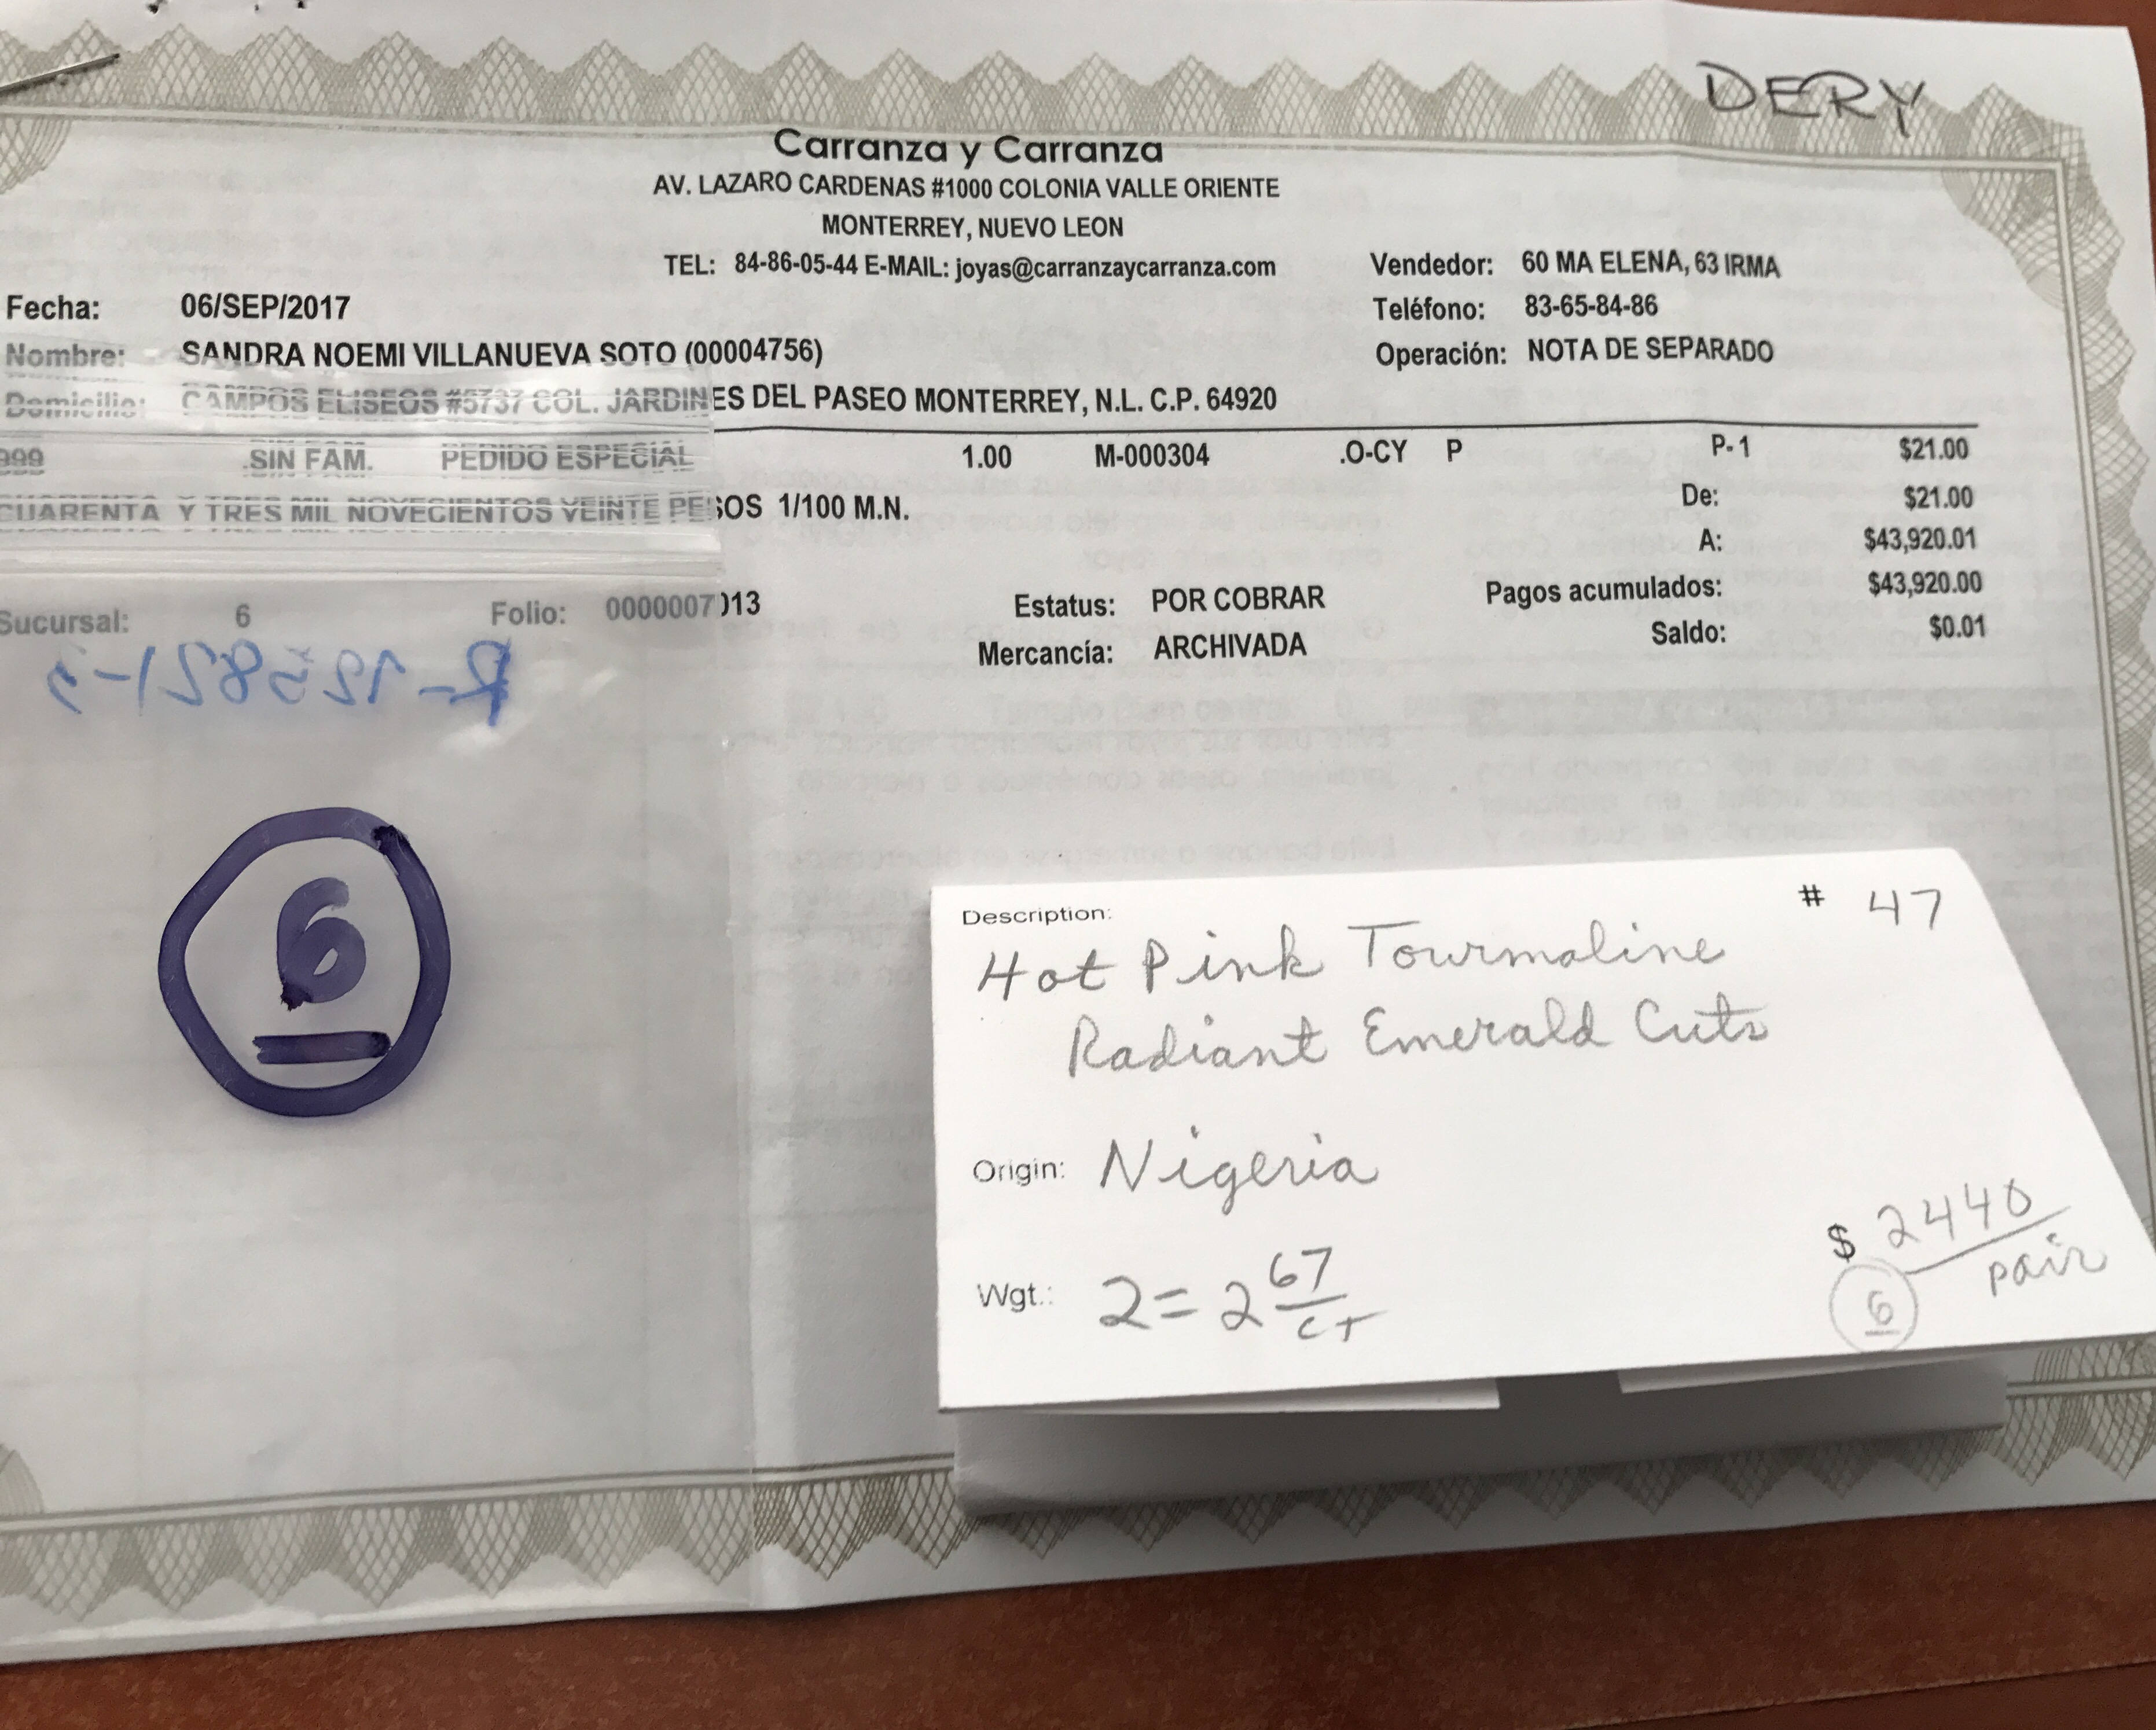 DERY
Carranza y Carranza
AV. LAZARO CARDENAS #1000 COLONIA VALLE ORIENTE
MONTERREY, NUEVO LEON
TEL: 84-86-05-44 E-MAIL: joyas@carranzaycarranza.com
Vendedor: 60 MA ELENA, 63 IRMA
Teléfono: 83-65-84-86
Operación: NOTA DE SEPARADO
Fecha: 06/SEP/2017
Nombre: SANDRA NOEMI VILLANUEVA SOTO (00004756)
Domicilio: CAMPOS ELISEOS #5737 COL. JARDINES DEL PASEO MONTERREY, N.L. C.P. 64920
999 .SIN FAM. PEDIDO ESPECIAL 1.00 M-000304 .O-CY P P-1 $21.00
CUARENTA Y TRES MIL NOVECIENTOS VEINTE PESOS 1/100 M.N.
De: $21.00
A: $43,920.01
Pagos acumulados: $43,920.00
Saldo: $0.01
Sucursal: 6 Folio: 0000007013
Estatus: POR COBRAR
Mercancía: ARCHIVADA
6
Description: # 47
Hot Pink Tourmaline
Radiant Emerald Cuts
Origin: Nigeria
Wgt.: 2 = 2 67/CT
$ 2440/pair
6